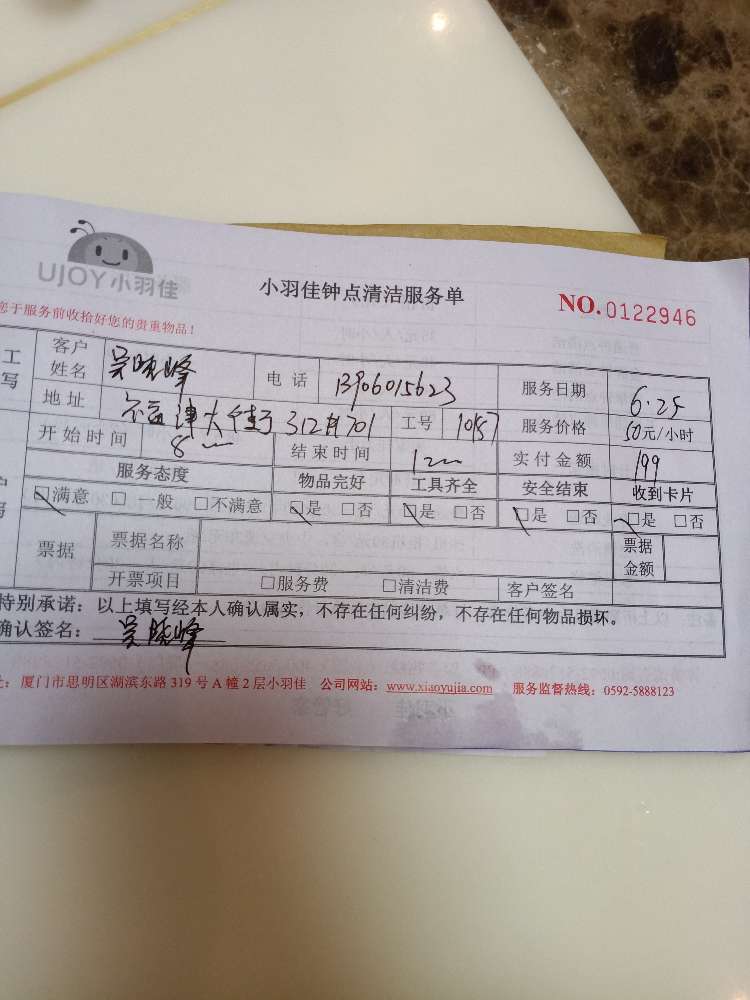 UJOY小羽佳
小羽佳钟点清洁服务单
NO.0122946
您于服务前收拾好您的贵重物品!
工 客户姓名 电话 13906015623 服务日期 6.25
写 地址 大街 312 701 工号 10157 服务价格 50元/小时
开始时间 8 结束时间 12 实付金额 199
服务态度 物品完好 工具齐全 安全结束 收到卡片
☑满意 □一般 □不满意 ☑是 □否 ☑是 □否 ☑是 □否 ☑是 □否
票据 票据名称 票据金额
开票项目 □服务费 □清洁费 客户签名
特别承诺:以上填写经本人确认属实,不存在任何纠纷,不存在任何物品损坏。
确认签名:
厦门市思明区湖滨东路 319 号 A 幢 2 层小羽佳 公司网站:www.xiaoyujia.com 服务监督热线:0592-5888123